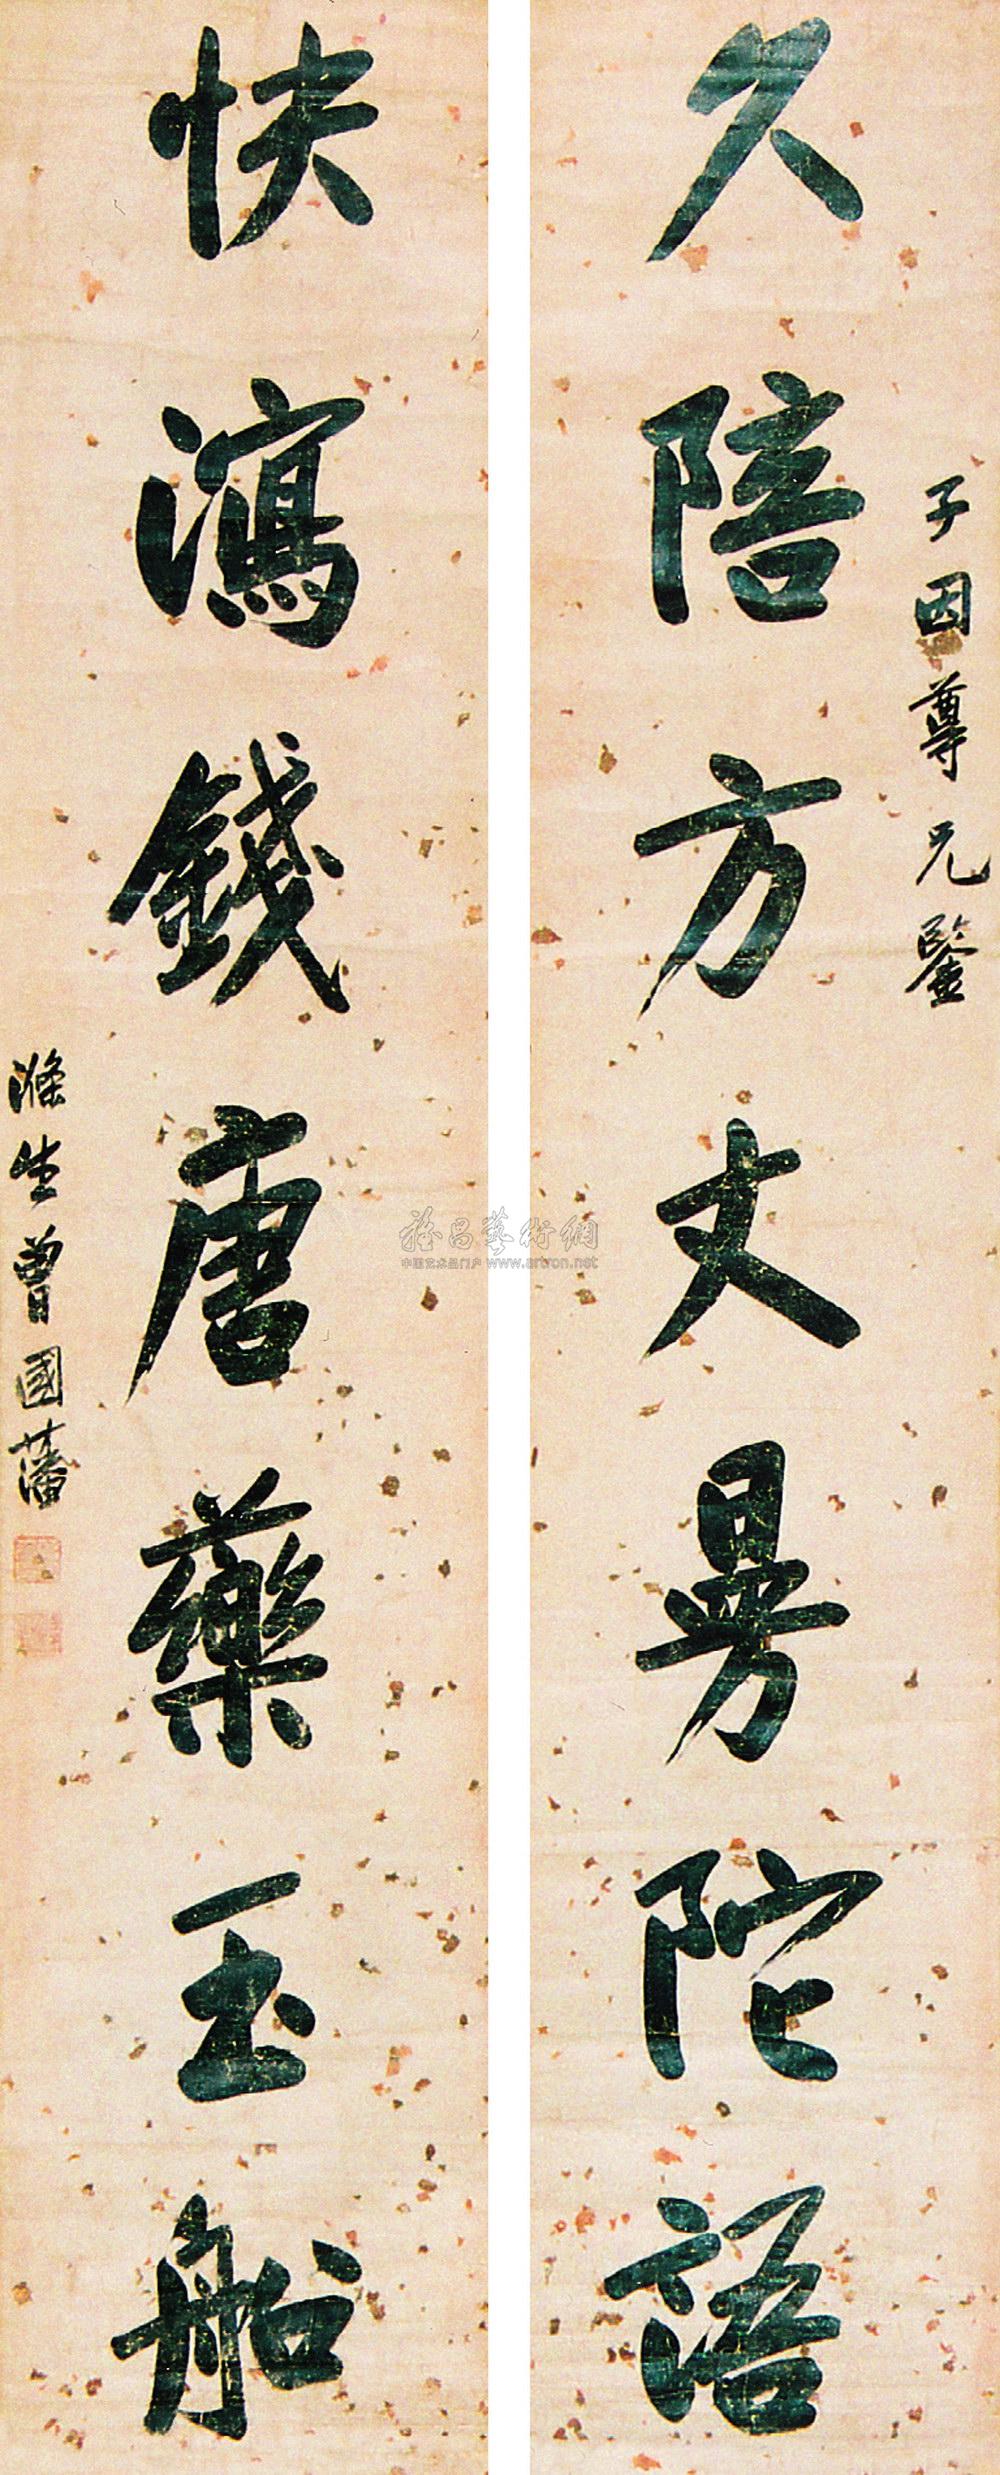 子因尊兄鑒
久陪方丈曼陀語
快瀉錢唐藥玉船
滌生曾國藩
雅昌藝術網
中国艺术品门户 www.artron.net